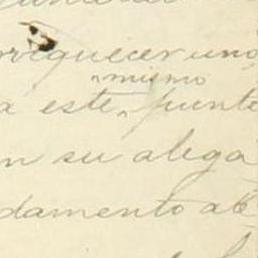 rriquecer uno
mismo
a este punto
n su alega
damento ale